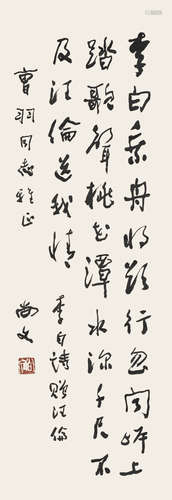 李白乘舟将欲行忽闻岸上
踏歌聲桃花潭水深千尺不
及汪倫送我情
李白詩贈汪倫
曹羽同志雅正
尚文